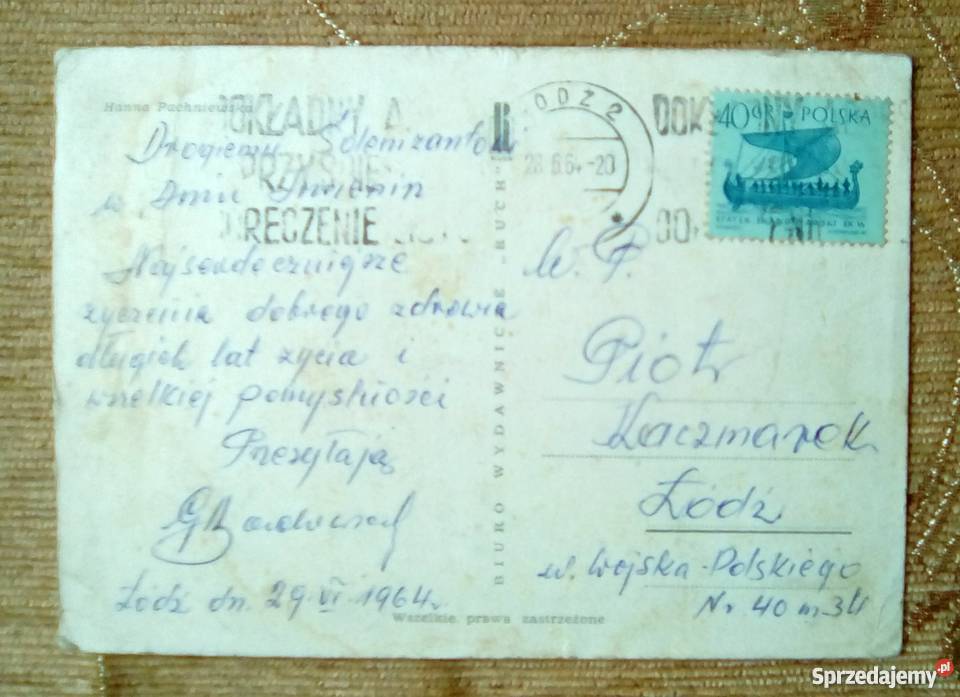 Hanna Pachniewska
Drogiemu Solenizantowi
w Dniu Imienin
Najserdeczniejsze
życzenia dobrego zdrowia
długich lat życia i
wszelkiej pomyślności
Przesyłają
Łódź dn. 29 VI 1964 r.
BIURO WYDAWNICZE „RUCH”
Wszelkie prawa zastrzeżone
DOKŁADNY A
PRZYŚPIE
DORĘCZENIE
ŁÓDŹ 2
28.6.64-20
40 GR POLSKA
W. P.
Piotr
Kaczmarek
Łódź
ul. Wojska-Polskiego
Nr 40 m 34
Sprzedajemy.pl